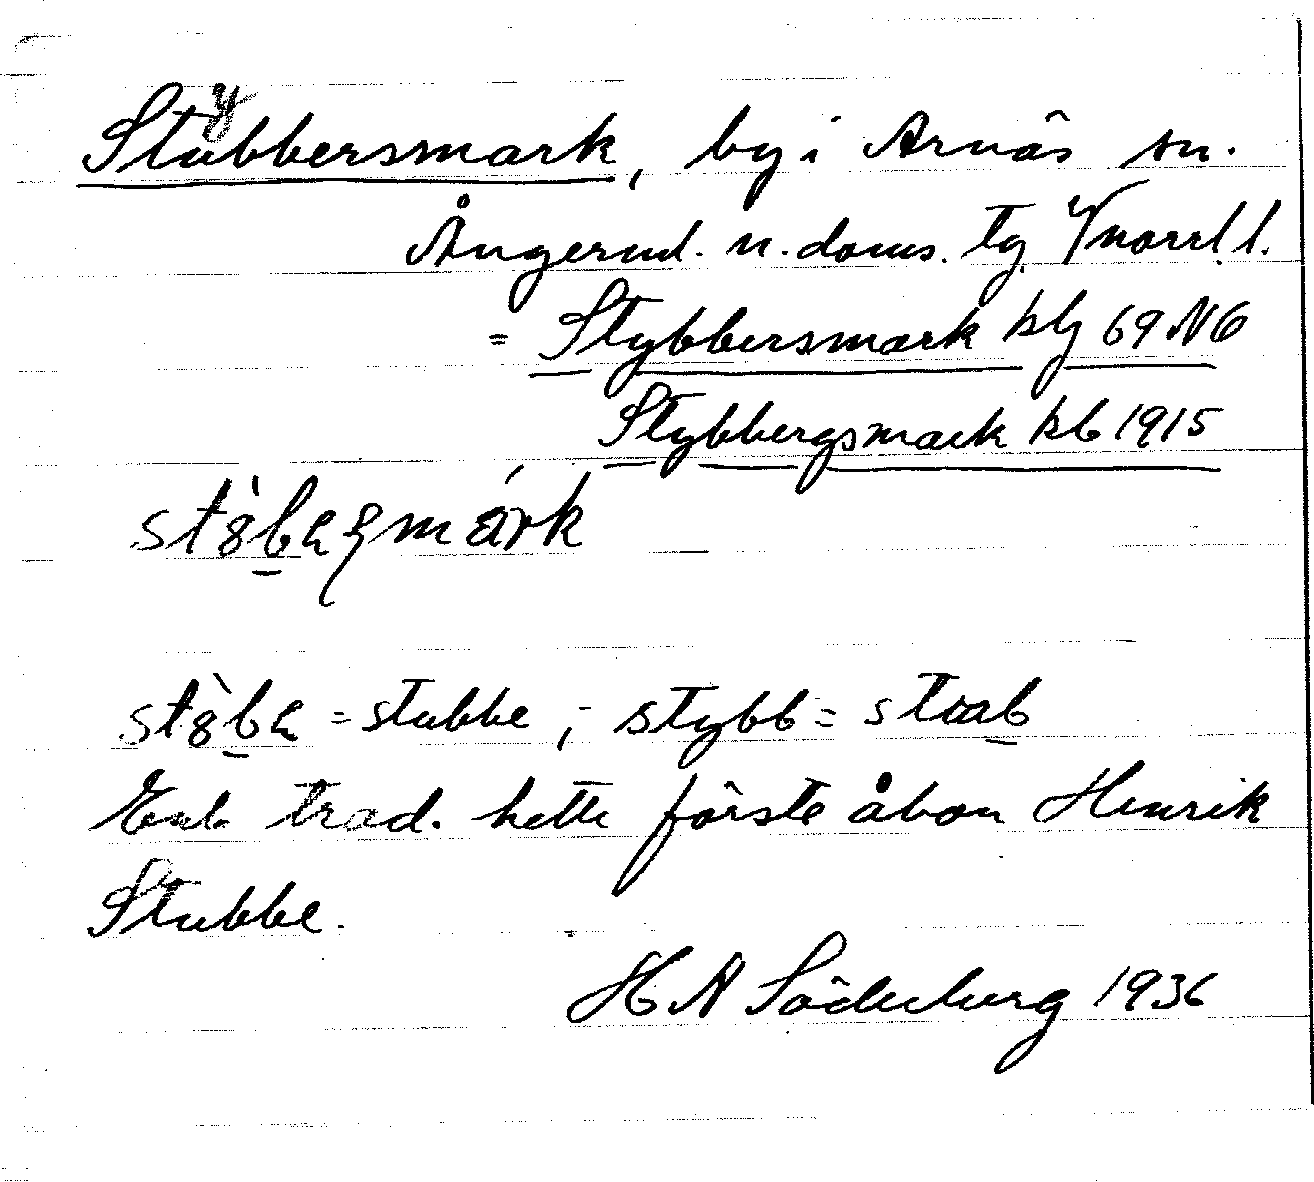 Stubbersmark, by i Arnäs sn.
y
Ångerml. n. doms. tg Vnorrl l.
= Stybbersmark blg 69 NÖ
Stybbergsmark kb 1915
=stubbe, - stybb=
Enl. trad. hette förste åbon Henrik
Stubbe.
H A Söderberg 1936